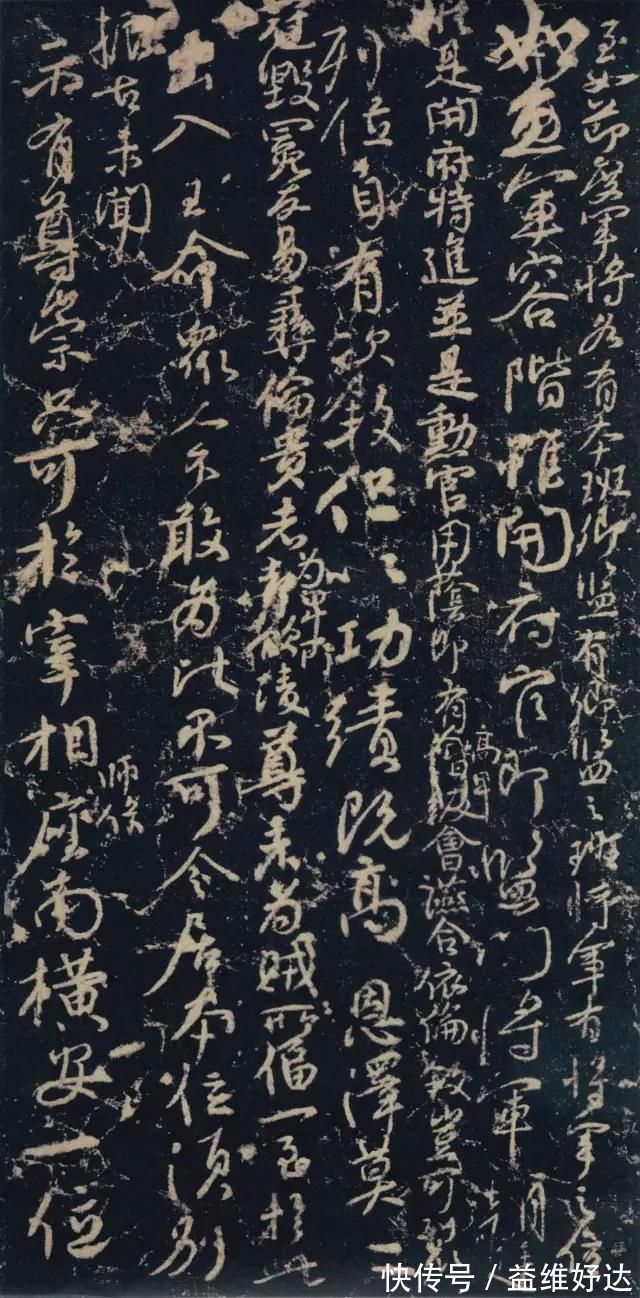 至如節度軍將各有本班卿監有卿監之班將軍有將軍之位
如魚軍容階雖開府官即監門將軍朝廷
縱是開府特進並是勳官用蔭即有高卑會讌合依倫敘豈可裂
列位自有次敘但以功績既高恩澤莫二
冠毀冕反易彝倫貴者為卑所陵尊者為賊所偪一至於此
出入王命眾人不敢為比不可令居本位須別
振古未聞
示有尊崇只可於宰相師保座南橫安一位
快传号／益维妤达